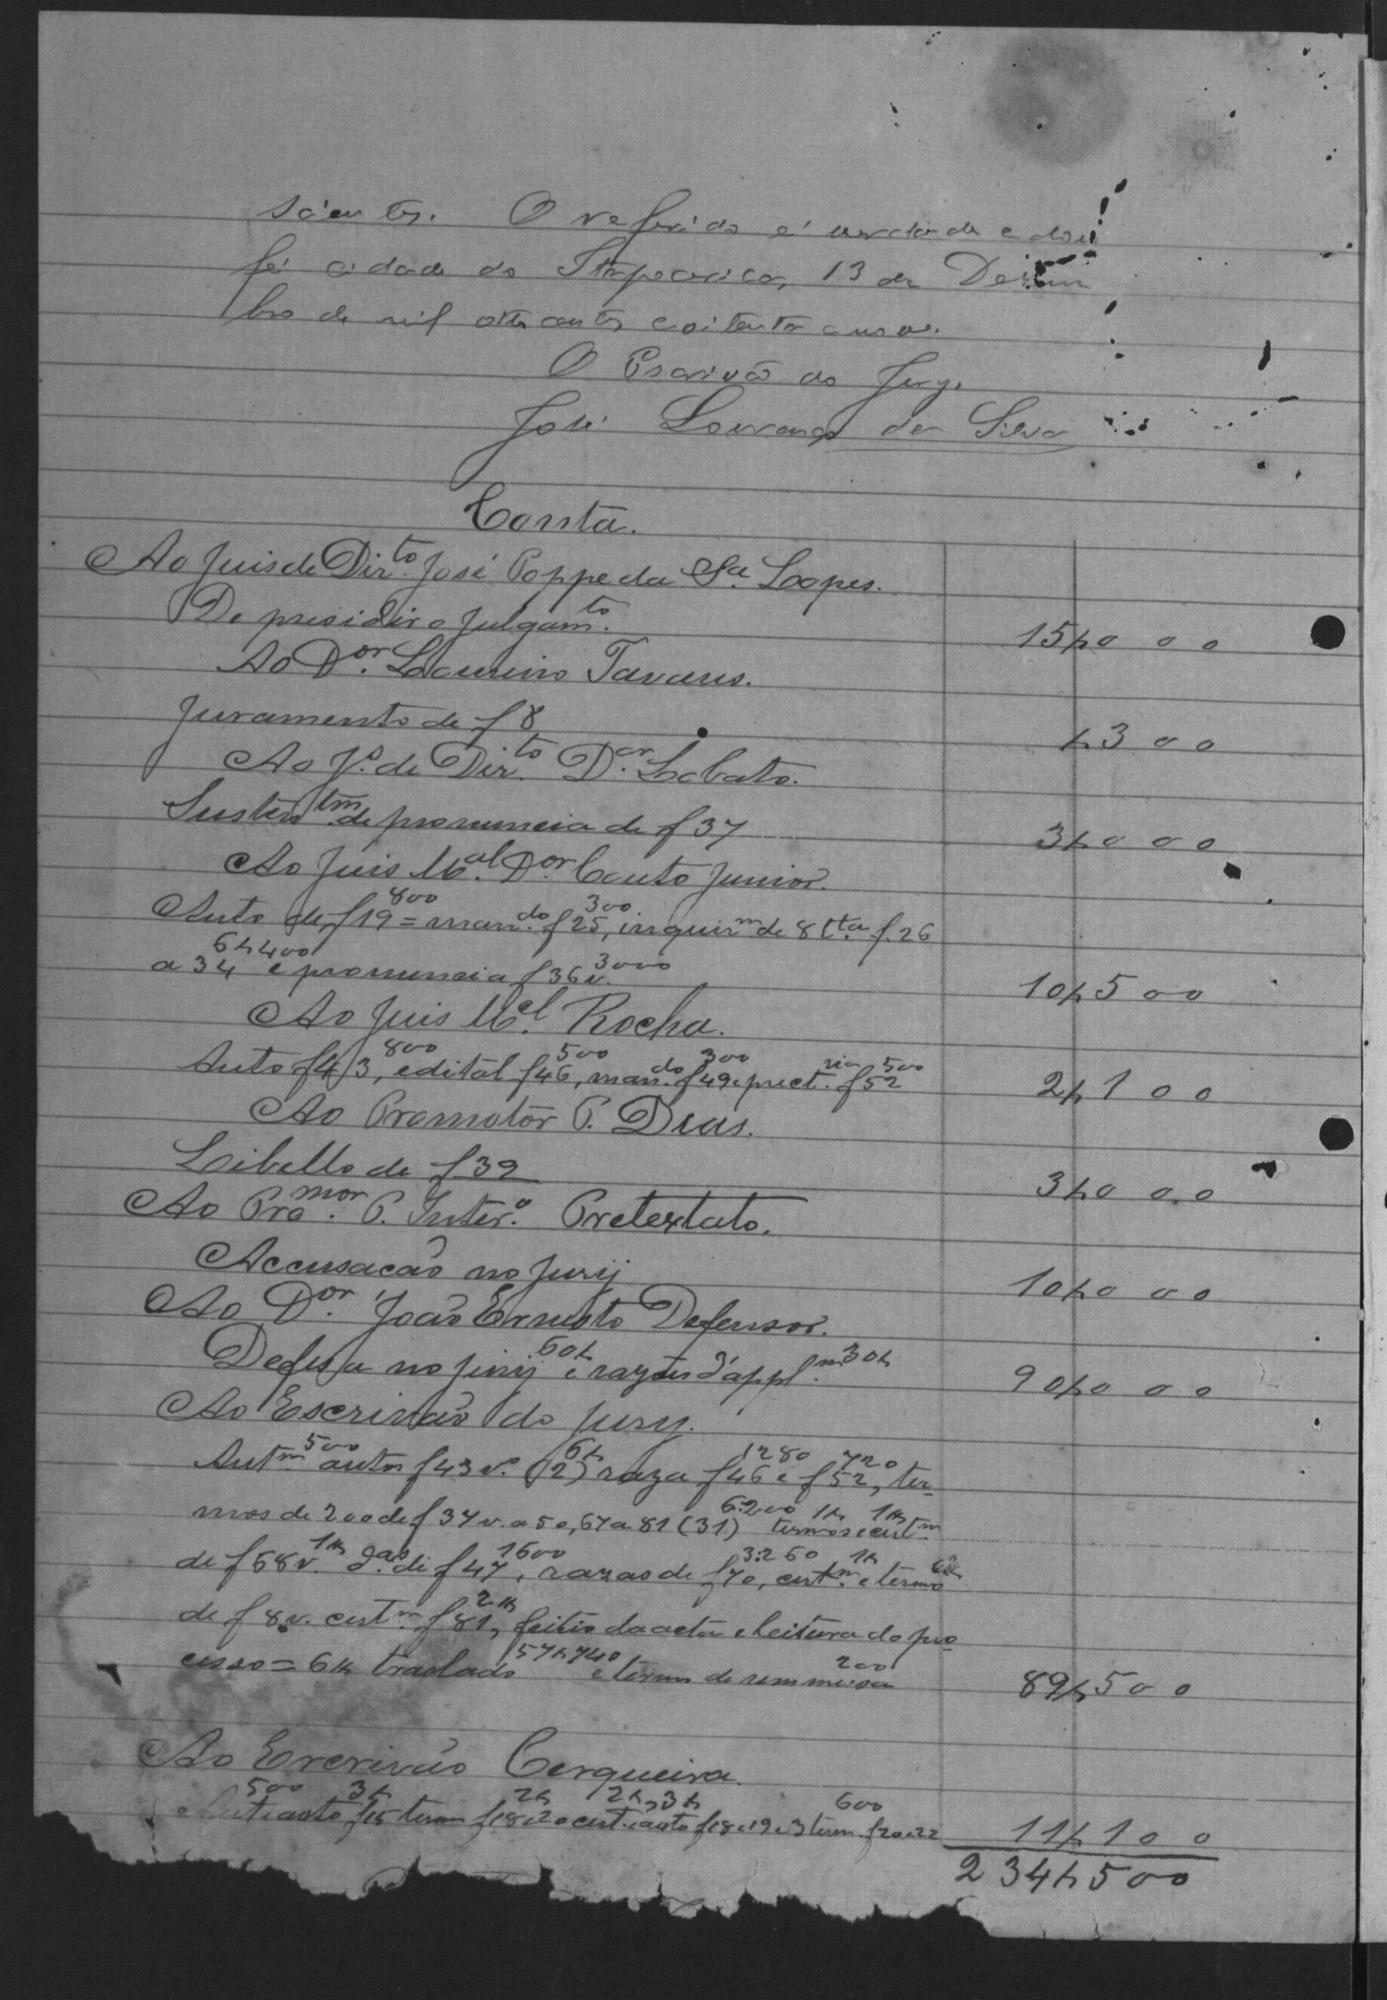 scientes. O referido é verdade e dou
fé cidade do Itapecerica, 13 de Dezem
bro de mil oito centos e oitenta e nove.
O Escrivão do Jury.
José Lourenço da Silva
Conta.
Ao Juis de Dir.to José Poppe da S.a Lopes.
De presidir o julgam.to 15$000
Ao D.or Loureiro Tavares.
Juramento de f 8 $300
Ao J.s de Dir.to D.or Lobato.
Susten.tm de pronuncia de f 37 3$000
Ao Juis M.al D.or Couto Junior.
Auto de f 19 800 = man.do f 25 300, inquir.m de 8 t.ta f. 26
a 34 6$400 e pronuncia f 36 v. 3000 10$500
Ao Juis M.el Rocha.
Auto f 43 800, edital f 46 500, man.do f 49 300 e prect.ria f 52 500 2$100
Ao Promotor P. Dias.
Libello de f 39 3$000
Ao Pro.mor P. Inter.o Pretextato.
Accusacão no Jury 10$000
Ao D.or João Ernesto Defensor.
Defesa no jury 60$ e razões d'appl.m 30$ 90$000
Ao Escrivão do jury.
Aut.m 500 autos f 43 v.o (2) 6$ raza f 46 1280 e f 52 720, ter-
mos de 200 de f 37 v. a 50, 67 a 81 (31) 6:200 termos 1$ e cert.m 1$
de f 68 v. 1$ d.as de f 47 1600, razas de f 70 3:260, cert.m 1$ e termo
de f 8 v. cert.m f 81 2$, feitio da acta e leitura do pro
cesso = 6$ traslado 57$740 e termo de remmessa 200 89$500
Ao Escrivão Cerqueira.
500 auto f 15 3$ termo f 18 e 20 2$ cert. e auto f 18 e 19 2$, 3$ e 3 term. f 20 e 22 600 11$100
234$500